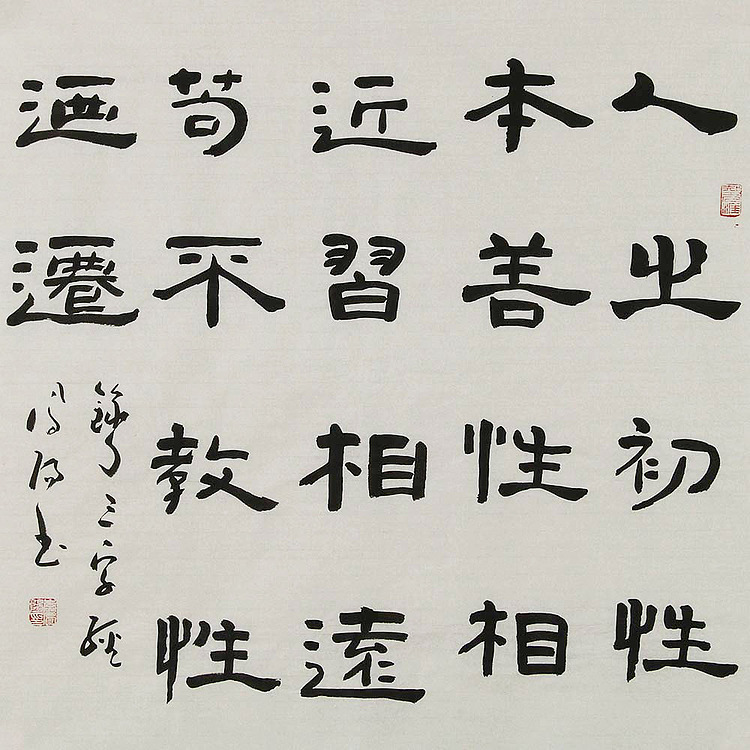 人之初性
本善性相
近習相遠
苟不教性
迺遷
三字經
書